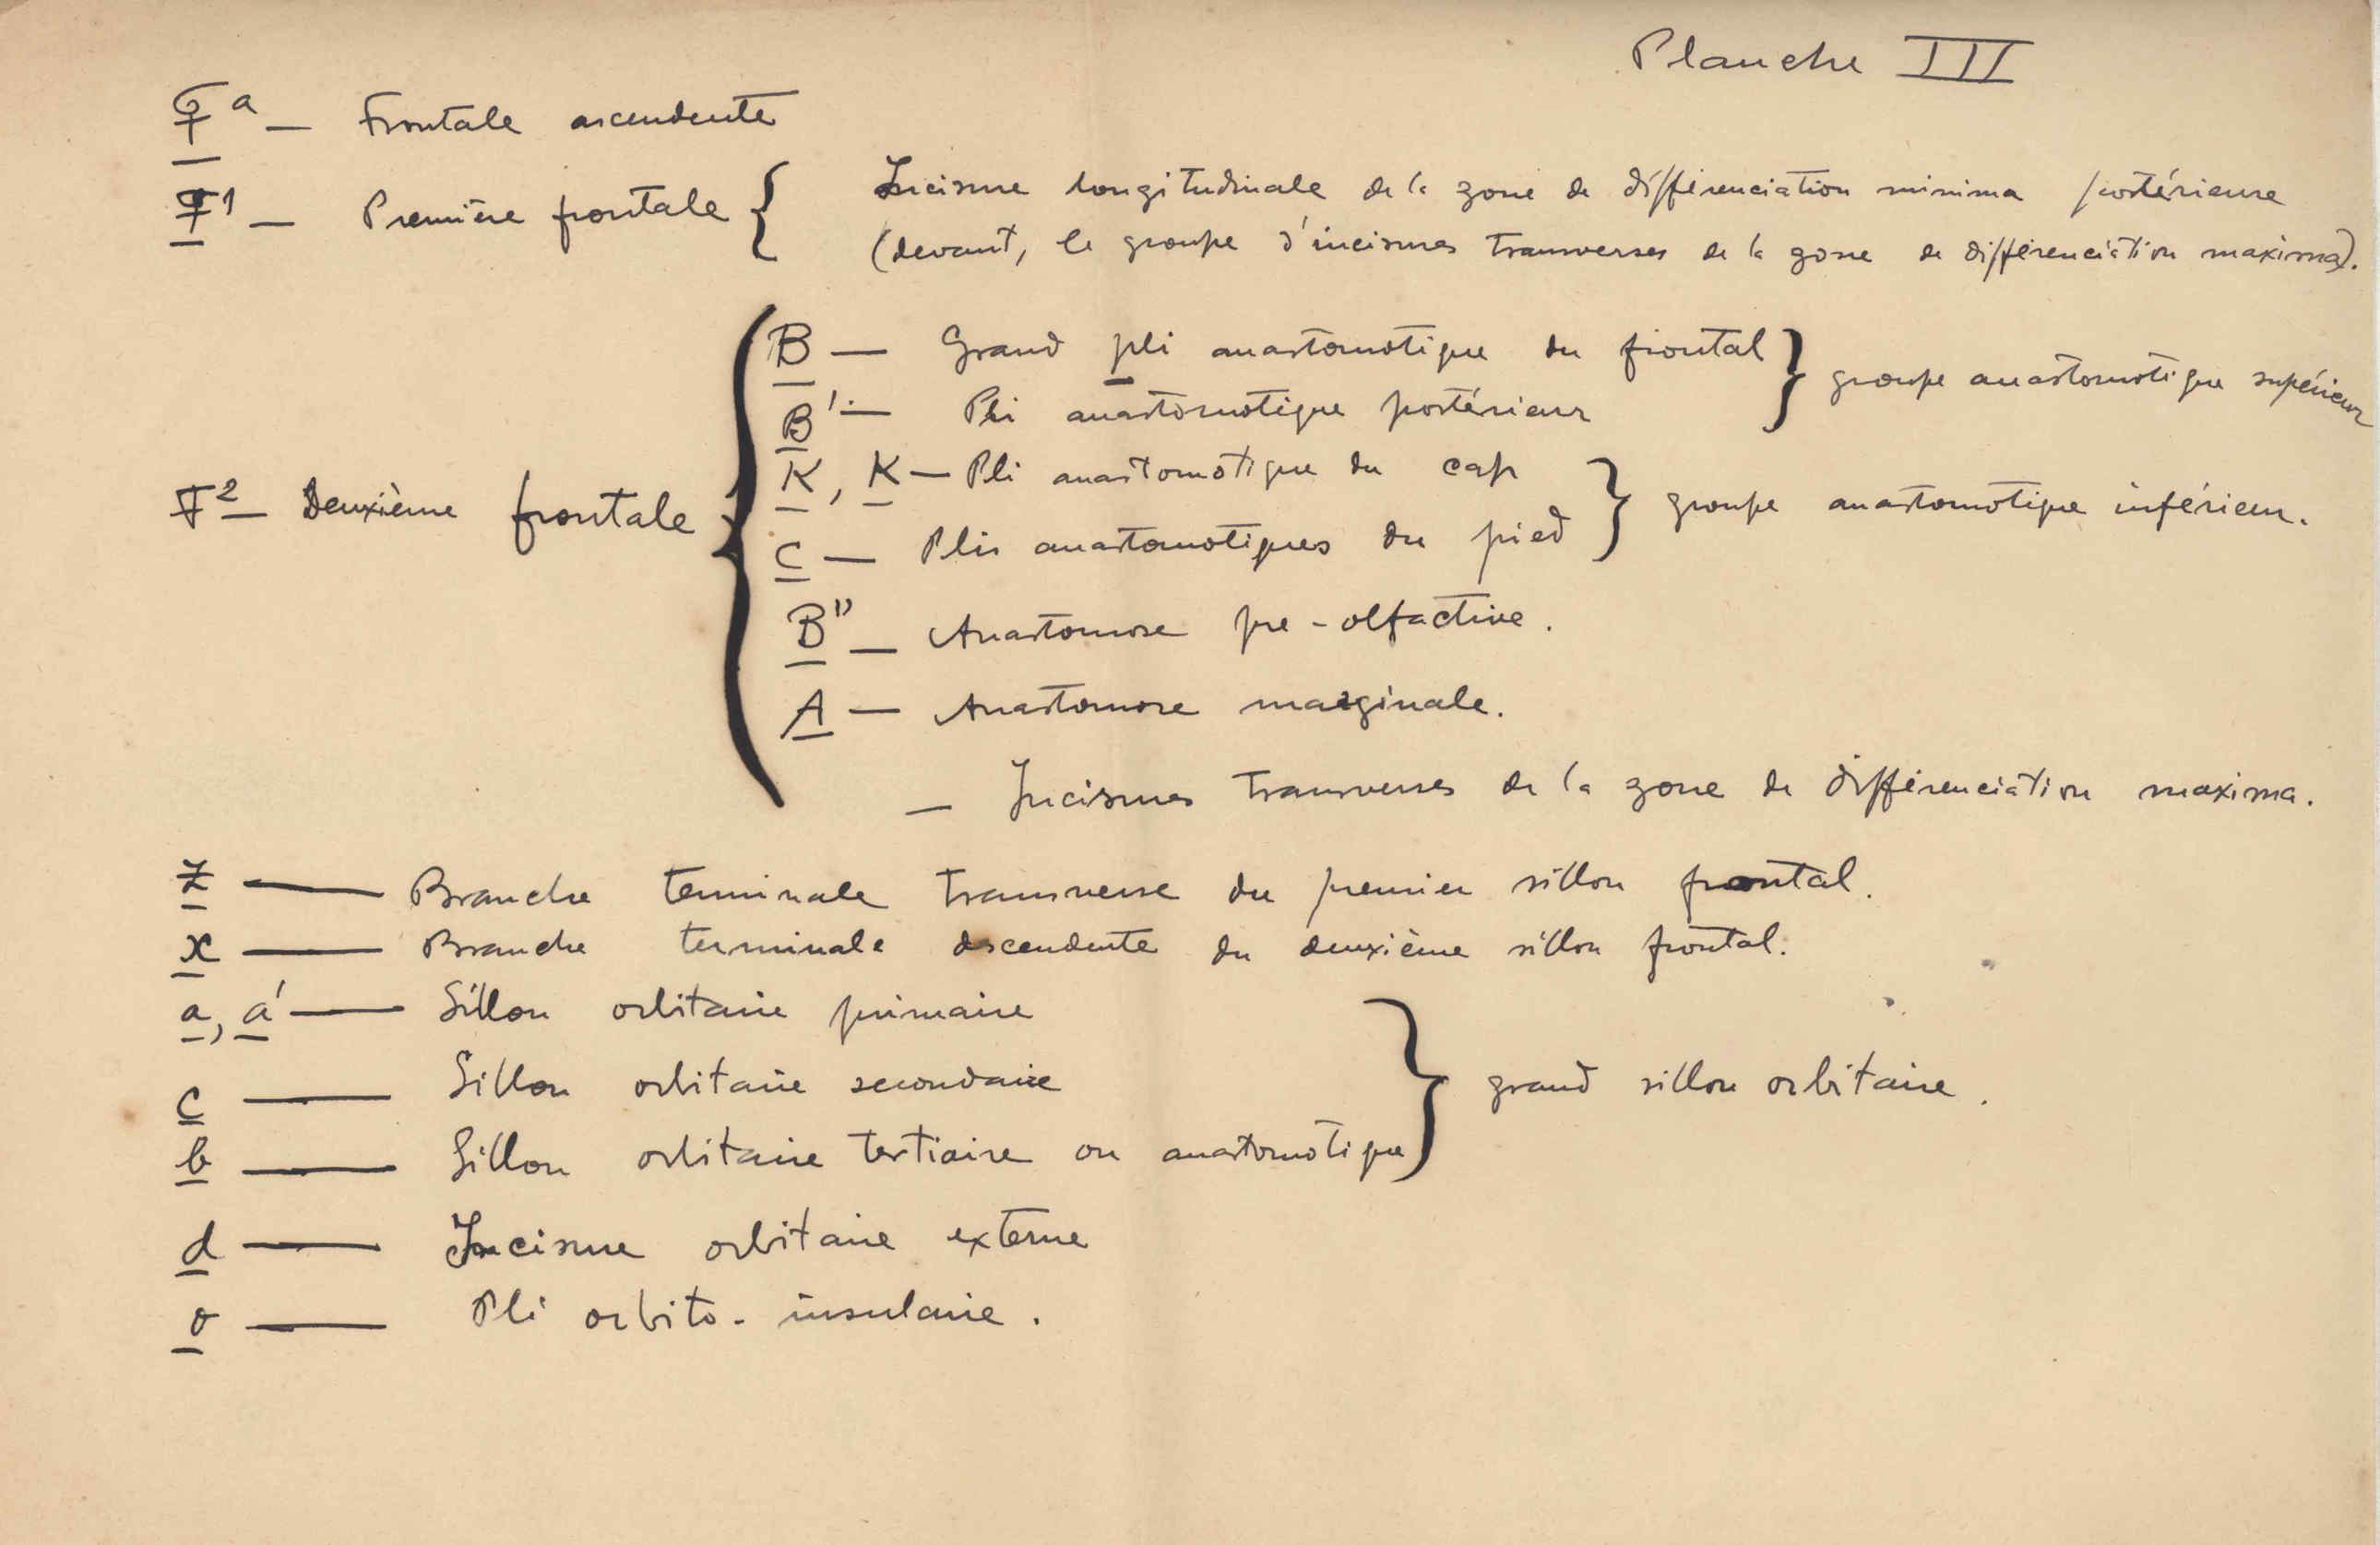 Planche III
Fa — Frontale ascendente
F1 — Première frontale { Incisure longitudinale de la zone de différenciation minima postérieure
(devant, le groupe d'incisures transverses de la zone de différenciation maxima).
B — Grand pli anastomotique du frontal } groupe anastomotique supérieur
B' — Pli anastomotique postérieur
K, K — Pli anastomotique du cap } groupe anastomotique inférieur.
F2 — Deuxième frontale {
C — Plis anastomotiques du pied
B" — Anastomose pre-olfactive.
A — Anastomose marginale.
— Incisures transverses de la zone de différenciation maxima.
Z — Branche terminale transverse du premier sillon frontal.
x — Branche terminale descendente du deuxième sillon frontal.
a, a' — Sillon orbitaire primaire
c — Sillon orbitaire secondaire } grand sillon orbitaire.
b — Sillon orbitaire tertiaire ou anastomotique
d — Incisure orbitaire externe
o — Pli orbito-insulaire.